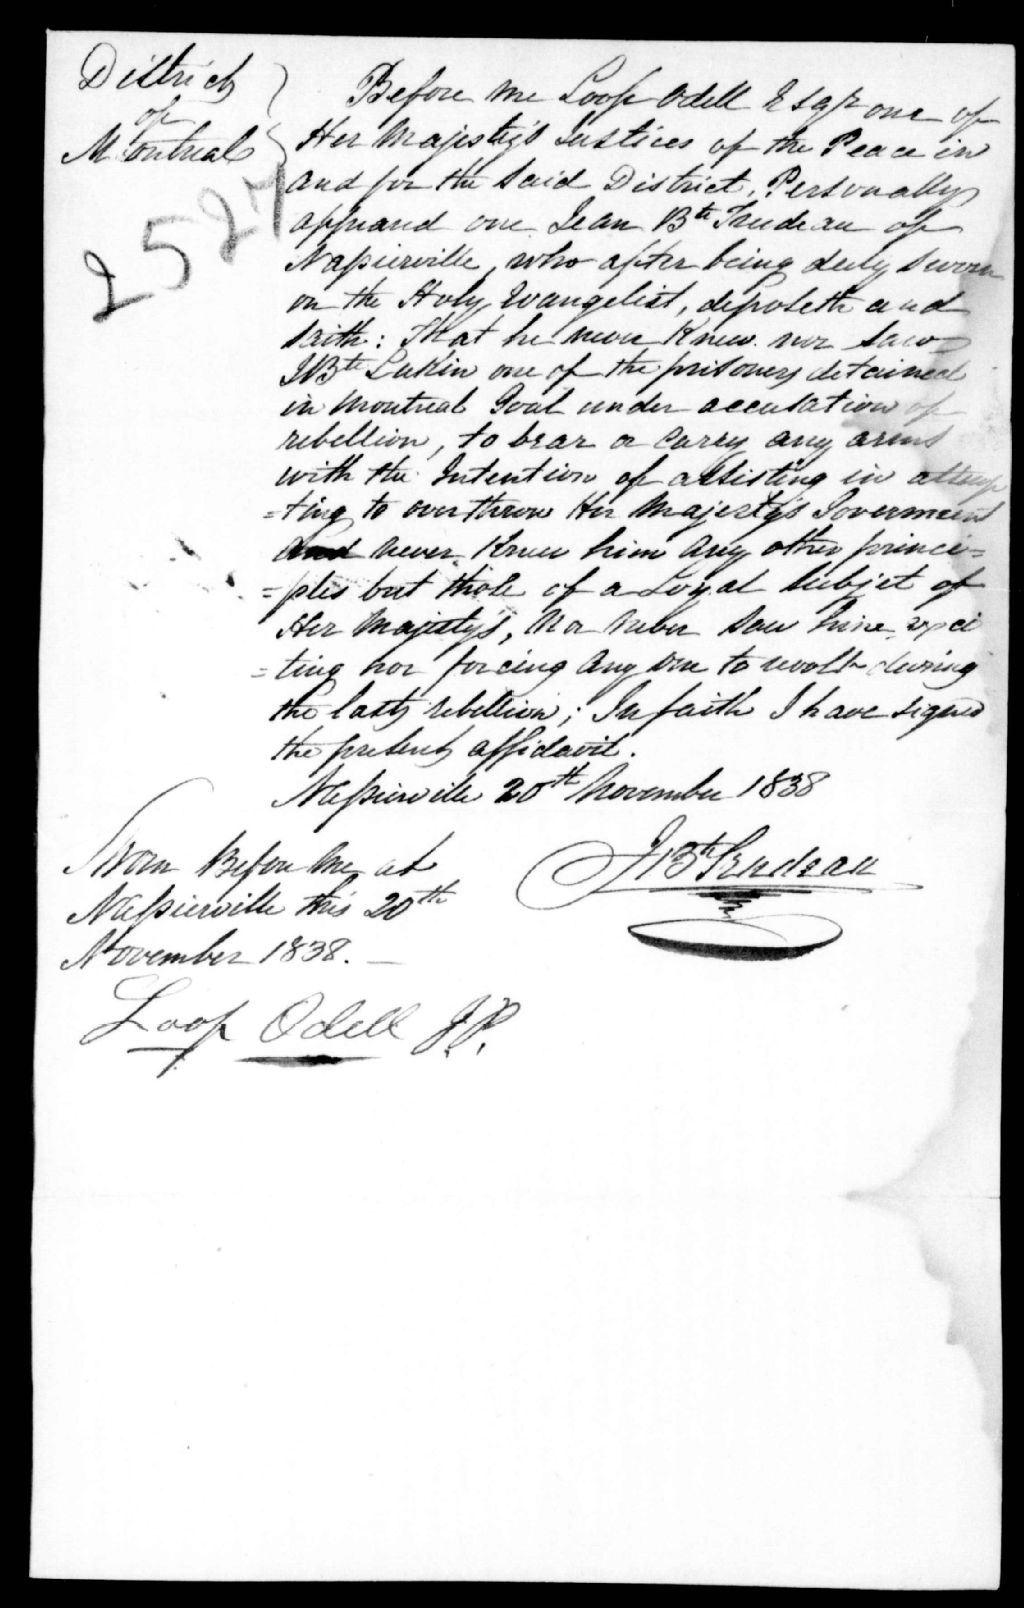 District
of
Montreal
2527
Before me Loop Odell Esqr one of
Her Majesty's Justices of the Peace in
and for the said District, Personally
appeared one Jean Bte Trudeau of
Napierville, who after being duly sworn
on the Holy Evangelist, deposeth and
saith: That he never Knew nor saw
JBte Lukin one of the prisoners detained
in Montreal Goal under accusation of
rebellion, to bear or carry any arms
with the Intention of assisting in attemp
=ting to overthrow Her Majesty's Goverment
and never Knew him any other princi=
=ples but those of a Loyal Subjet of
Her Majesty's, Nor never saw him exci
=ting nor forcing any one to revolt during
the last rebellion; In faith I have signed
the present affidavit.
Napierville 20th November 1838
JBte Trudeau
Sworn Before me at
Napierville this 20th
November 1838. —
Loop Odell J.P.